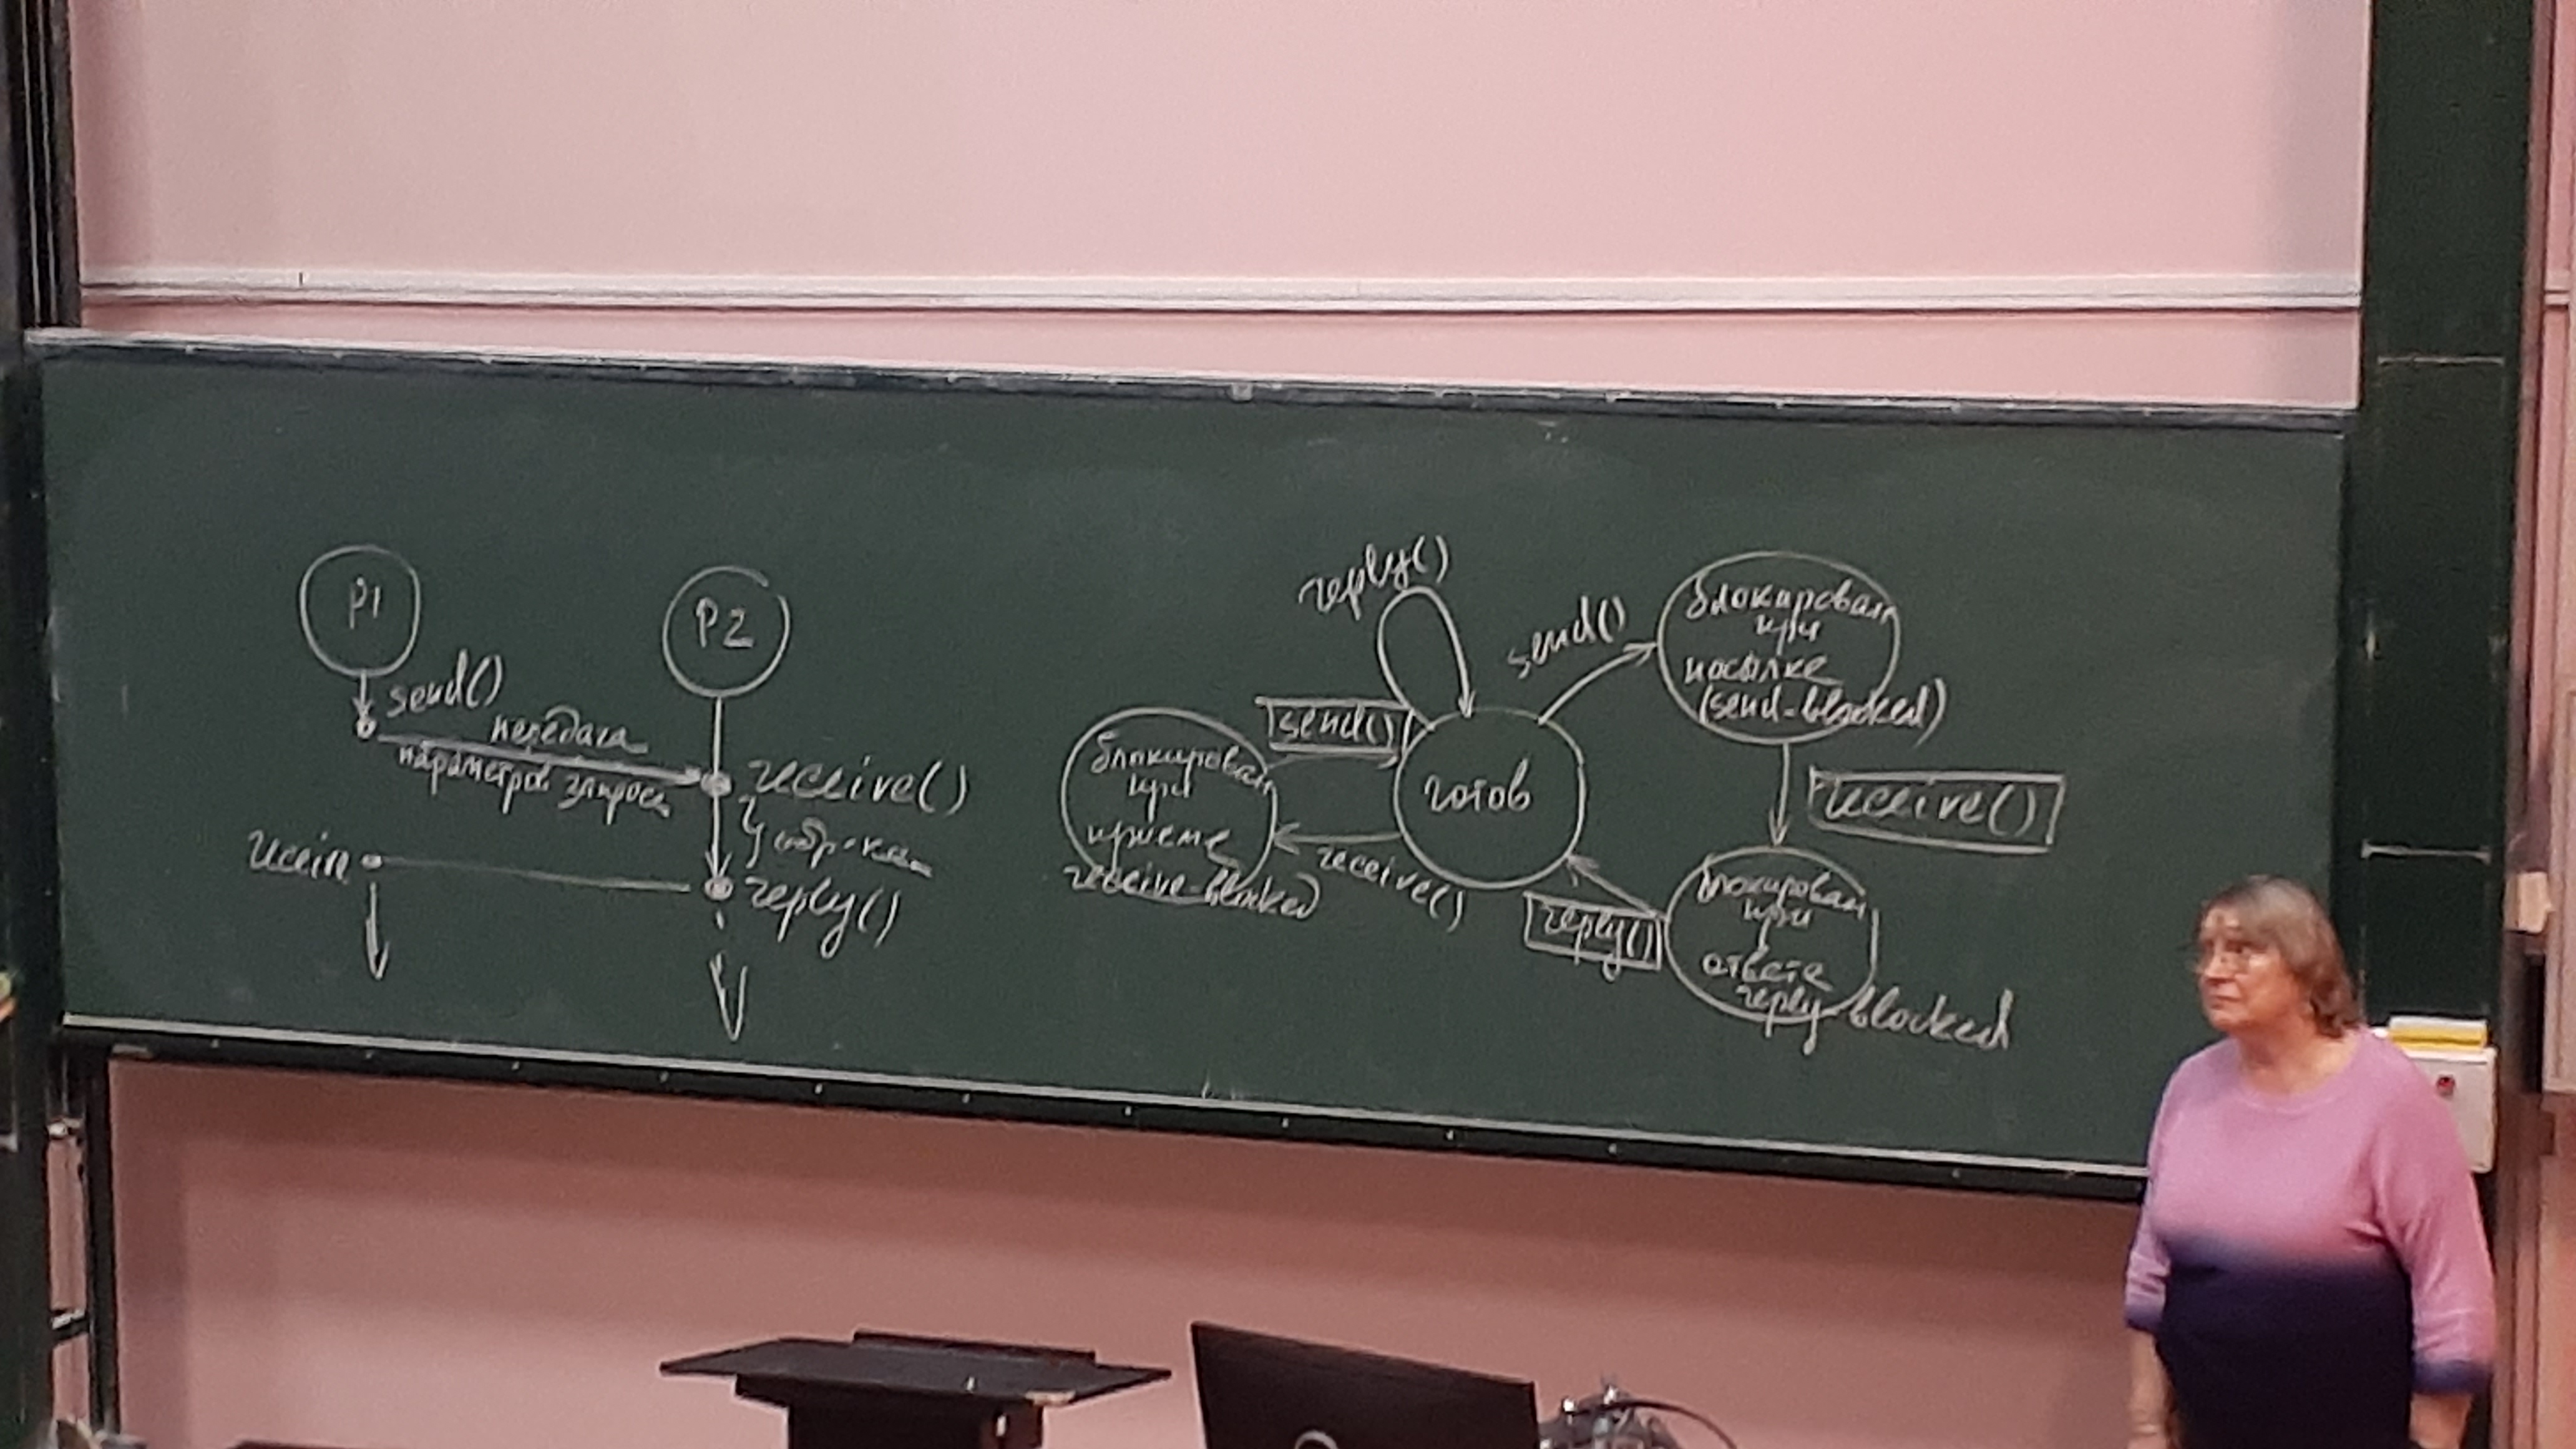 P1
send()
передача
параметров запроса
P2
receive()
reply()
reply()
send()
блокирован
при
посылке
(send-blocked)
send()
блокирован
при
приеме
receive-blocked
готов
receive()
receive()
reply()
блокирован
при
ответе
reply-blocked